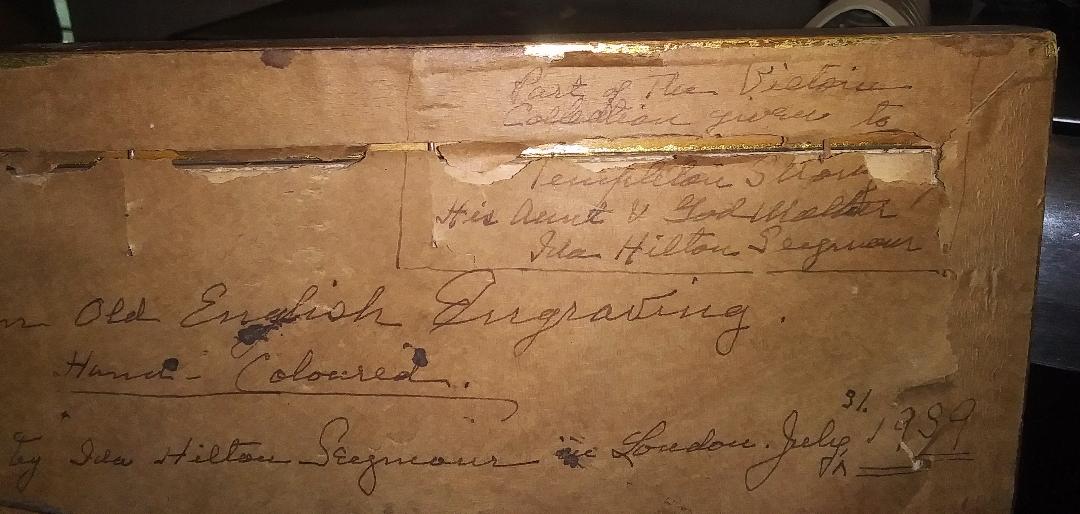 Part of The Victoria
Collection given to
Templeton Strong
His Aunt & God Mother
Ida Hilton Seegmour
Old English Engraving.
Hand-Coloured.
by Ida Hilton Seegmour in London. July 31. 1939